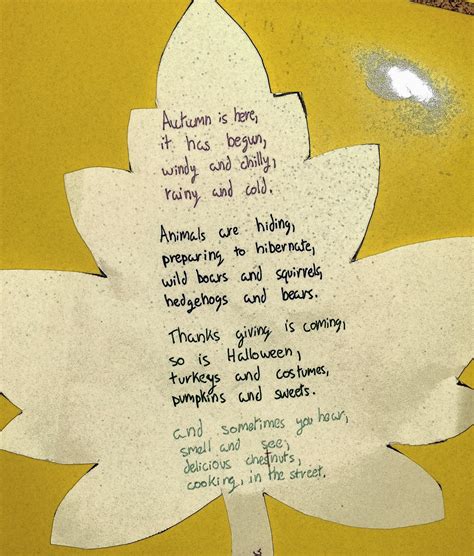 Autumn is here,
it has begun,
windy and chilly,
rainy and cold.
Animals are hiding,
preparing to hibernate,
wild boars and squirrels,
hedgehogs and bears.
Thanks giving is coming,
so is Halloween,
turkeys and costumes,
pumpkins and sweets.
and sometimes you hear,
smell and see,
delicious chestnuts,
cooking, in the street.